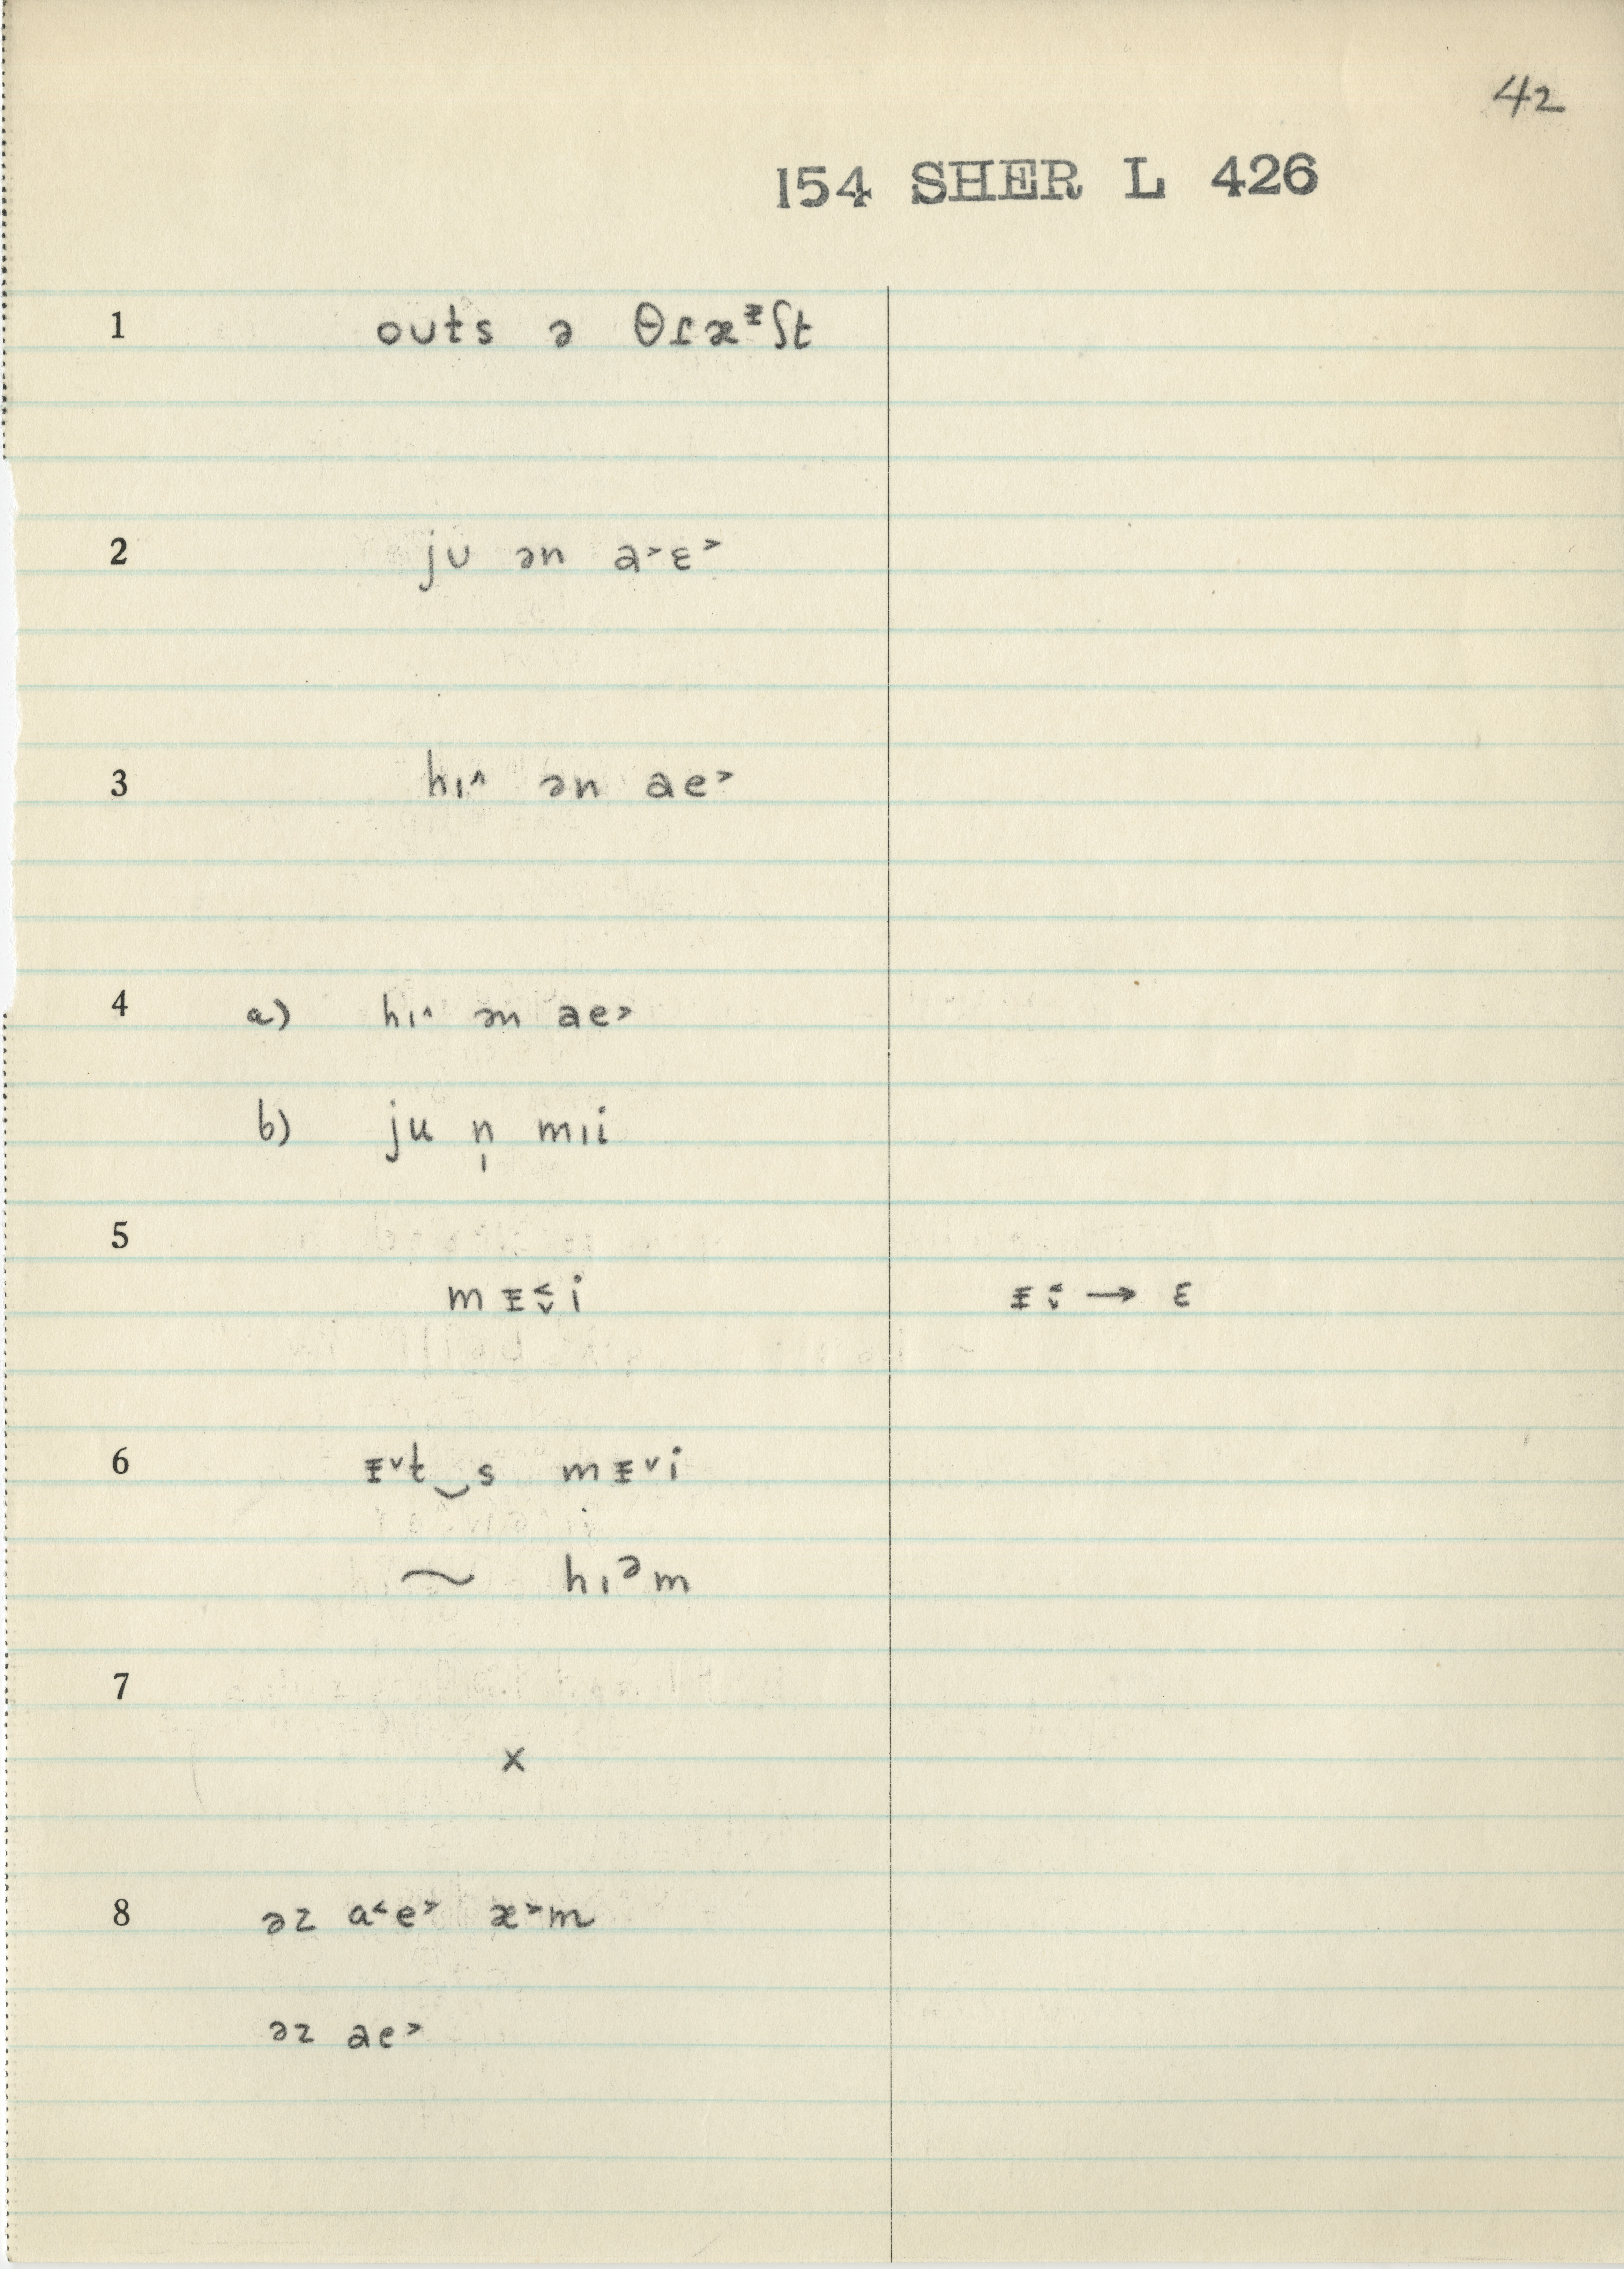 42
154 SHER L 426
1 outs ə θɾæᵻʃt
2 ju ən a˃ɛ˃
3 hɪ˄ ən ae˃
4 a) hɪ˄ ən ae˃
b) ju n̩ mɪi
5
mᵻ˂˅i ᵻ˂˅ → ɛ
6 ᵻ˅t‿s mᵻ˅i
~ hɪᵊm
7
x
8 əz a˂e˃ æ˃m
əz ae˃